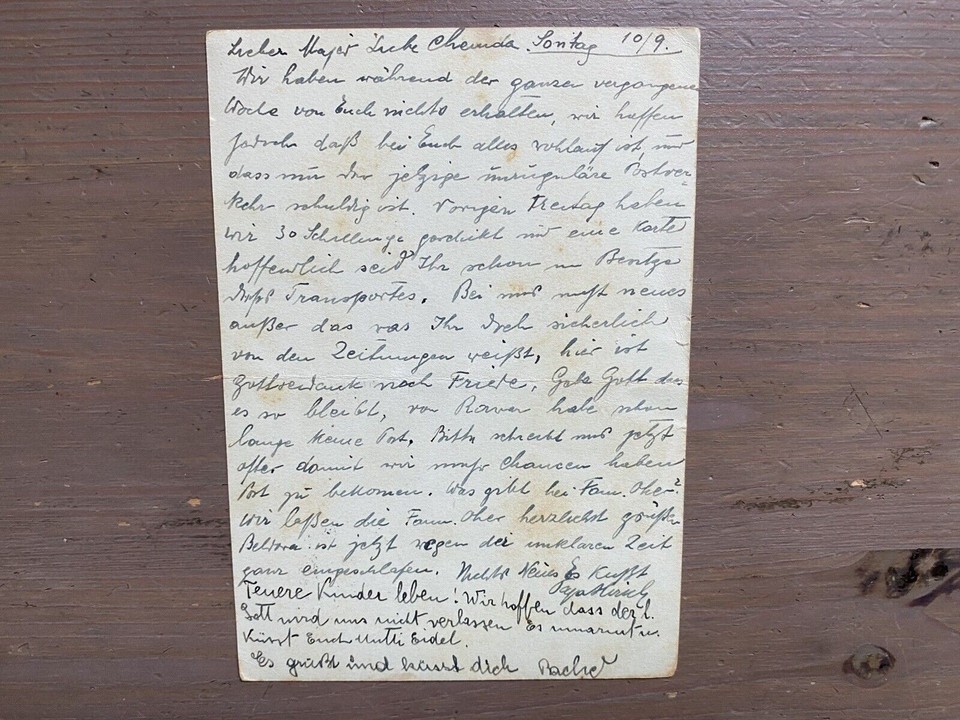 Lieber Majer Liebe Chemda. Sontag 10/9.
Wir haben während der ganzen vergangene
Woche von Euch nichts erhalten, wir hoffen
jedoch daß bei Euch alles wohlauf ist, und
dass nur der jetzige unreguläre Postver-
kehr schuldig ist. Vorigen Freitag haben
wir 30 Schillinge geschikt und eine Karte
hoffendlich seid Ihr schon im Besitze
Transportes. Bei uns nicht neues
außer das was Ihr doch sicherlich
von den Zeitungen weißt, hier ist
gottseidank noch Friede, Gebe Gott das
es so bleibt, von habe schon
lange keine Post. Bitte schreibt uns jetzt
ofter damit wir mehr Chancen haben
Post zu bekomen. Was gibt bei Fam. Oher?
Wir laßen die Fam. Oher herzlichst grüßen
ist jetzt wegen der unklaren Zeit
ganz eingeschlafen. Nichts Neues Es Küßt
Papa Hirsch
Teuere Kinder leben! Wir hoffen dass der l.
Gott wird uns nicht verlassen Es umarmt u.
Küsst Euch Mutti Eidel.
Es grüßt und küsst dich